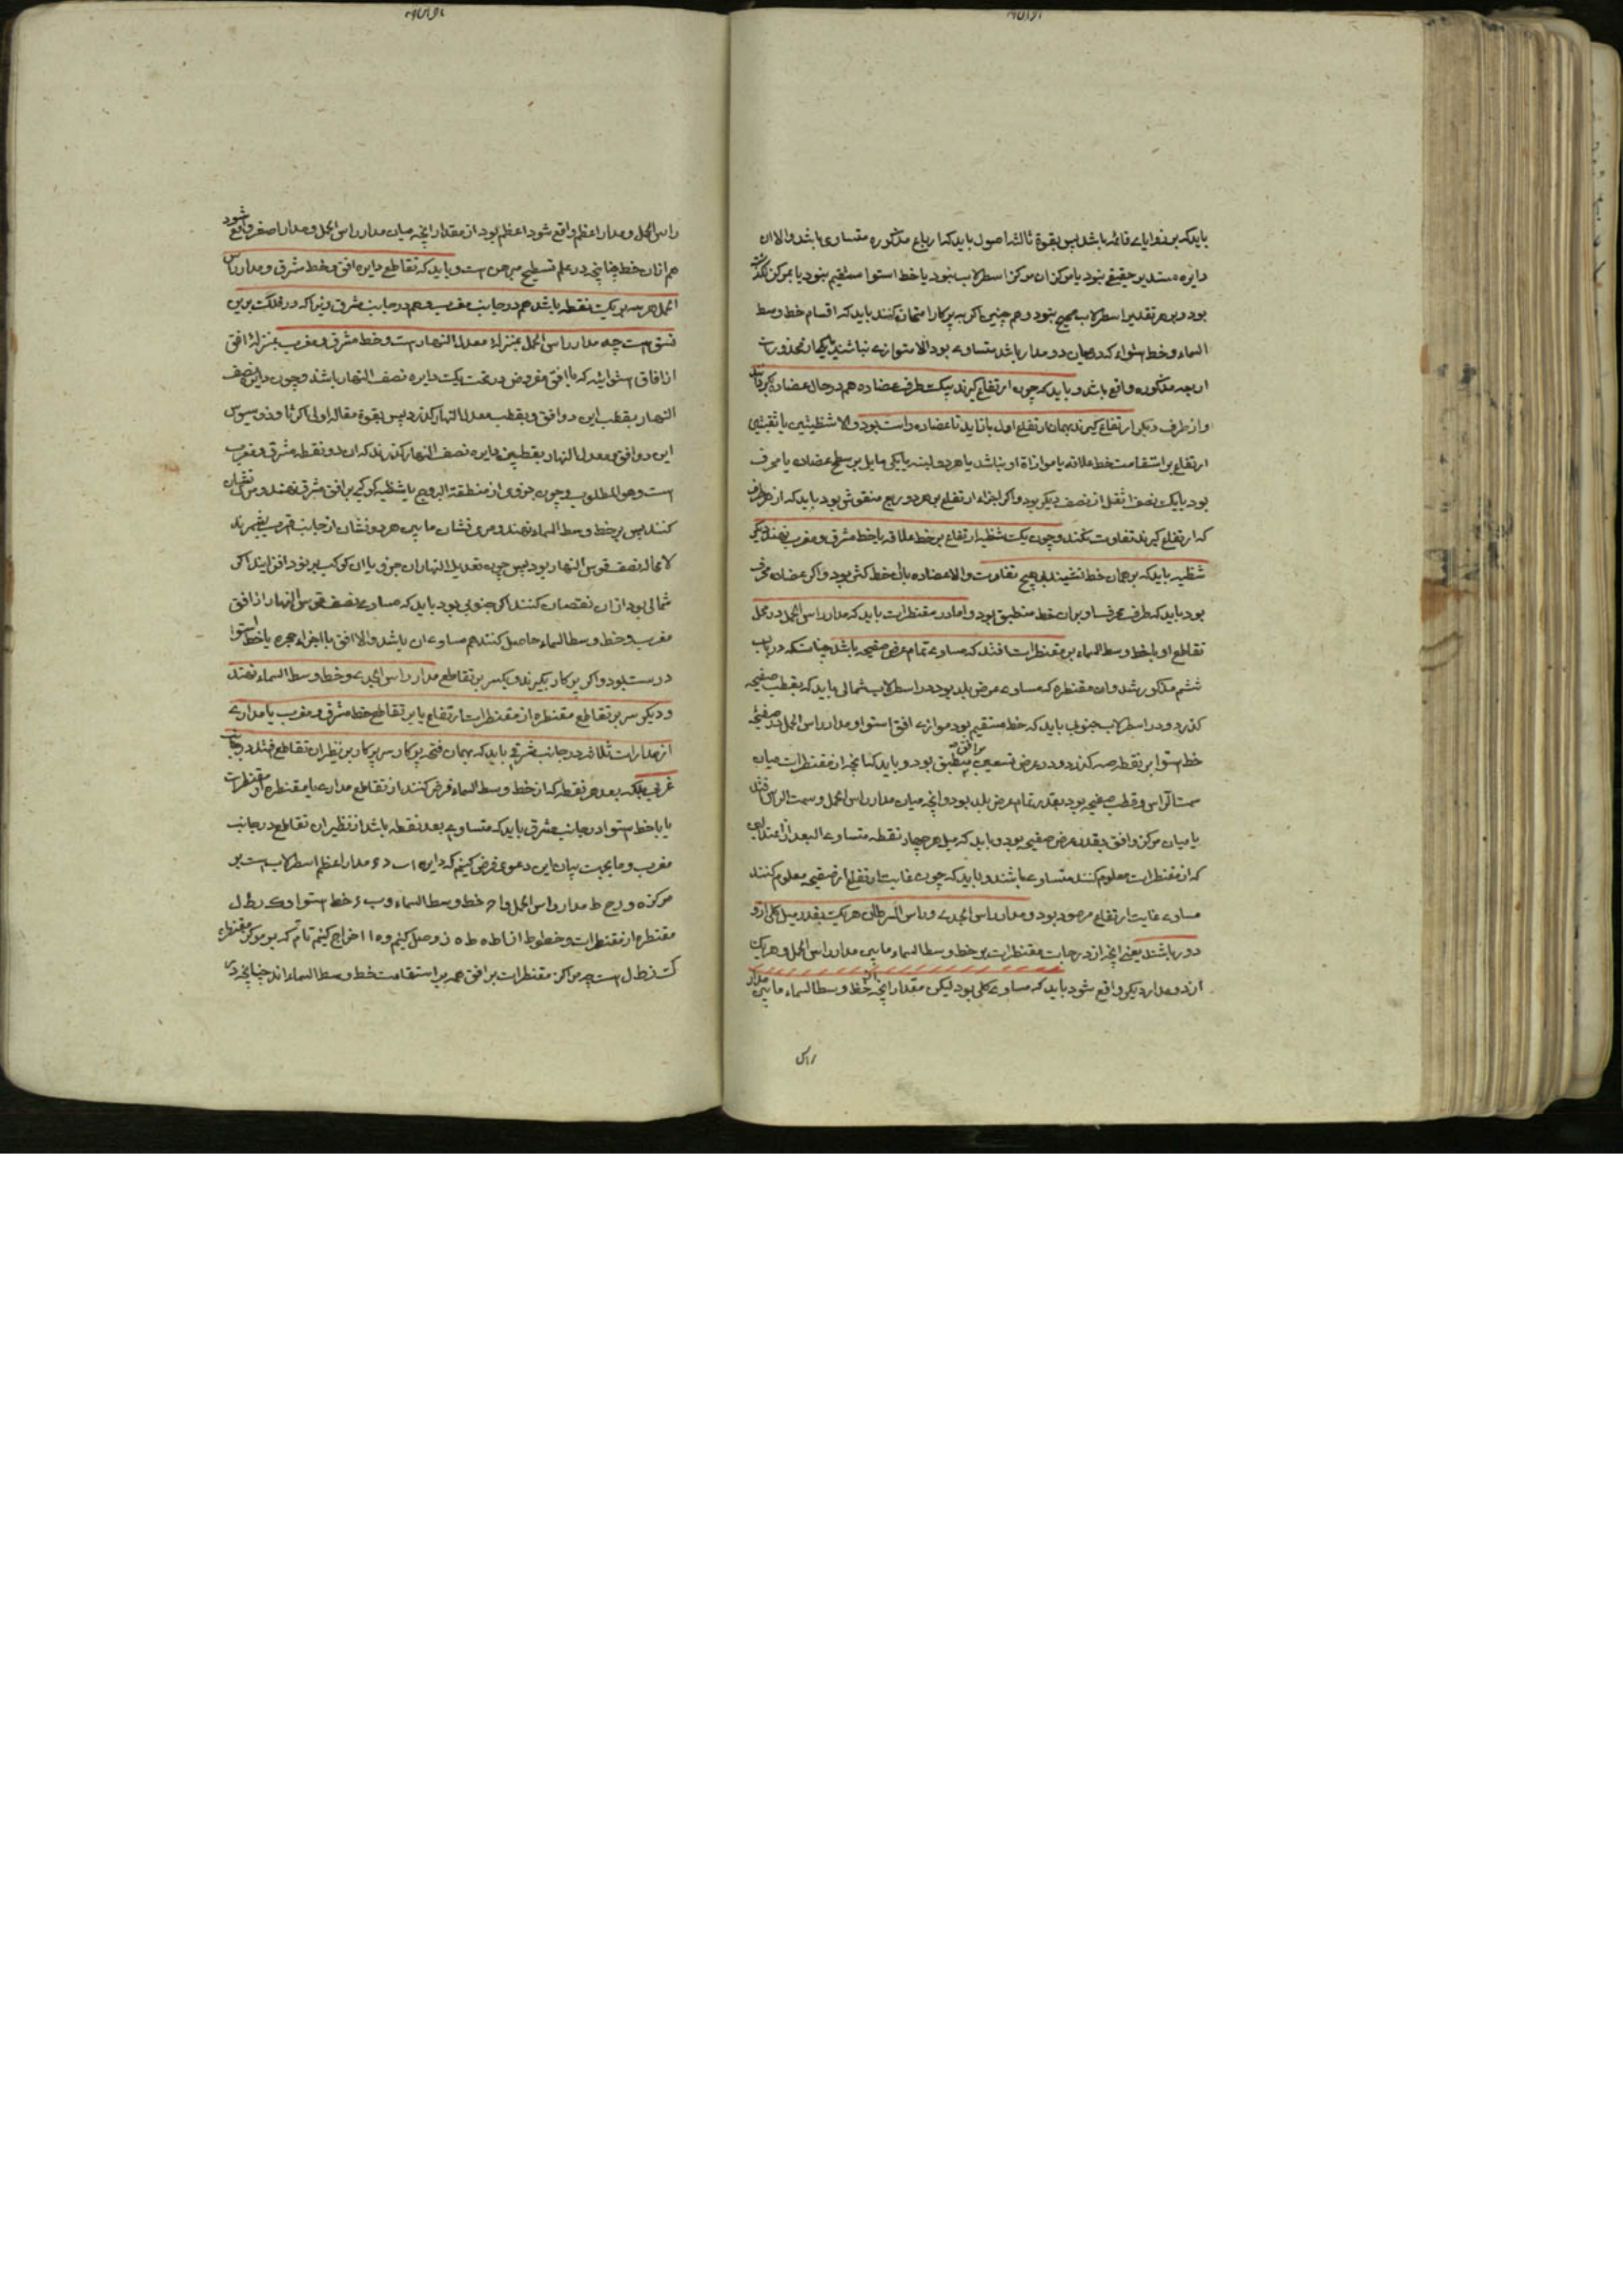 باید که بر زوایای قائمه باشد پس بقوة ثالثه اصول باید که ارباع مذکوره متساوی باشد والا ان
دایره مستدیر حقیقی نبود یا مرکز ان مرکز اسطرلاب نبود یا خط استوا مستقیم نبود یا بمرکز نگذشته
بود و بر هر تقدیر اسطرلاب صحیح نبود و هم چنین اکر به پرکار امتحان کنند باید که اقسام خط وسط
السماء و خط استواء که در میان دو مدار باشد متساوی بود الا متوازی نباشند یا یکی از محذورات
اربعه مذکوره واقع باشد و باید که چون ارتفاع کیرند بیکت طرف عضاده هم در حال عضاده بکردانند
و از طرف دیکر ارتفاع کیرند بهمان ارتفاع اول باز اید تا عضاده راست بود والا شظیتین یا ثقبتین
ارتفاع بر استقامت خط علاقه یا موازاة او نباشد یا هر دو لبنه یا یکی مایل بر سطح عضاده یا محرف
بود یا یک نصف اثقل از نصف دیکر بود و اکر اجزاء ارتفاع بر هر دو ربع منقوش بود باید که از هر طرف
که ارتفاع کیرند تفاوت نکند و چون یکت شظیه ارتفاع بر خط علاقه یا خط مشرق و مغرب نهند دیکر
شظیه باید که بر همان خط نشیند بی هیچ تفاوت والا عضاده یا ان خط کژ بود و اکر عضاده محرف
بود باید که طرف محرف او بران خط منطبق بود و اما در مقنطرات باید که مدار راس الحمل در محل
تقاطع او با خط وسط السماء بر مقنطرات افتد که مساوی تمام عرض صفیحه باشد چنانکه در باب
ششم مذکور شد و ان مقنطره که مساوی عرض بلد بود در اسطرلاب شمالی باید که بقطب صفیحه
کذرد و در اسطرلاب جنوبی باید که خط مستقیم بود موازی افق استوا و مدار راس الحمل در صفیحه
خط استوا بر نقطه صه کذرد و در عرض تسعین بر افق منطبق بود و باید که انچه از مقنطرات میان
سمت الراس و قطب صفیحه بود بقدر تمام عرض بلد بود و انچه میان مدار راس الحمل و سمت الراس افتد
یا میان مرکز و افق بقدر عرض صفیحه بود و باید که میل هر چهار نقطه متساوی البعد از اعتدالین
که از مقنطرات معلوم کنند متساوی باشند و باید که چون غایت ارتفاع از صفیحه معلوم کنند
مساوی غایت ارتفاع مرصود بود و مدار راس الجدی و راس السرطان هر یکت بقدر میل کلی از او
دور باشند یعنی انچه از درجات مقنطرات بر خط وسط السماء مابین مدار راس الحمل و هر یک
از دو مدار دیکر واقع شود باید که مساوی کلی بود لیکن مقدار انچه از خط وسط السماء مابین مدار
راس
راس الحمل و مدار اعظم واقع شود اعظم بود از مقدار انچه میان مدار راس الحمل و مدار اصغر واقع شود
هم ازان خط چنانچه در علم تسطیح مبرهن است و باید که تقاطع دایره افق و خط مشرق و مدار راس
الحمل هر سه بر یکت نقطه باشد هم در جانب مغرب و هم در جانب مشرق زیرا که در فلکت برین
نسق است چه مدار راس الحمل بمنزله معدل النهار است و خط مشرق و مغرب بمنزله افق
از افاق استوائیه که با افق مفروض در تحت یکت دایره نصف النهار باشد و چون دایره نصف
النهار بقطب این دو افق و بقطب معدل النهار کذرد پس بقوة مقاله اولی اکر ثاوذوسیوس
این دو افق و معدل النهار بقطبین دایره نصف النهار کذرند که ان دو نقطه مشرق و مغرب
است و هو المطلوب و چون جزوی از منطقة البروج یا شظیه کوکبی بر افق مشرق نهند و مری نشان
کنند پس بر خط وسط السماء نهند و مری نشان مابین هر دو نشان از جانب قریب بشمرند
لامحاله نصف قوس النهار بود پس چون تعدیل النهار ان جزو یا ان کوکب بر نود افزایند اکر
شمالی بود ازان نقصان کنند اکر جنوبی بود باید که مساوی نصف قوس النهار از افق
مغرب و خط وسط السماء حاصل کنند هم مساوی ان باشد والا افق یا اجزاء حجره یا خط استوا
درست نبود و اکر پرکار بکیرند و یکسر بر تقاطع مدار راس الجدی و خط وسط السماء نهند
و دیکر سر بر تقاطع مقنطره از مقنطرات ارتفاع یا بر تقاطع خط مشرق و مغرب یا مداری
از مدارات ثلاثه در جانب شرقی باید که بهمان فتحه پرکار سر پرکار بر نظیر ان تقاطع افتد در جانب
غربی بلکه بعد هر نقطه که از خط وسط السماء فرض کنند از تقاطع مدار با مقنطره از مقنطرات
یا با خط استوا در جانب مشرق باید که متساوی بعد نقطه باشد از نظیر ان تقاطع در جانب
مغرب و ما بجهت بیان این دعوی فرض کنیم که دایره ا ب د ء مدار اعظم اسطرلاب است بر
مرکز ه و ر ح ط مدار راس الحمل و ا ح خط وسط السماء و ب ء خط استوا و ک ر ط ل
مقنطره از مقنطرات و خطوط ا ز ا ط ه ط ه ز وصل کنیم و ه ا اخراج کنیم تا م که بر مرکز مقنطره
ک ز ط ل است چه مراکز مقنطرات بر افق همه بر استقامت خط وسط السماء اند چنانچه در